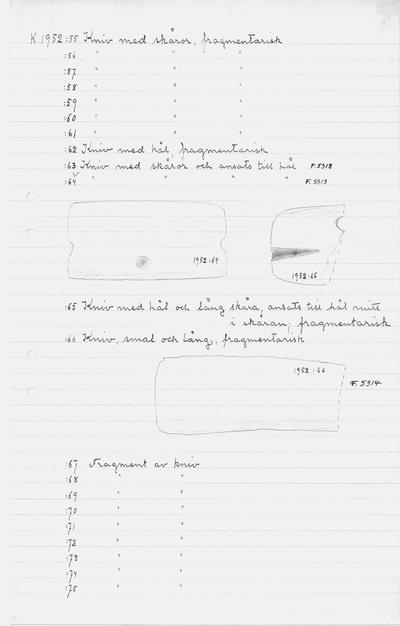 K 1952:55 Kniv med skåror, fragmentarisk
:56 " " "
:57 " " "
:58 " " "
:59 " " "
:60 " " "
:61 " " "
:62 Kniv med hål fragmentarisk
:63 Kniv med skåror och ansats till hål F. 5318
:64 " " " " F. 5313
1952:64
1952:65
:65 Kniv med hål och lång skåra; ansats till hål mitt
i skåran; fragmentarisk
:66 Kniv, smal och lång, fragmentarisk
1952:66
F. 5314
:67 Fragment av kniv
:68 " "
:69 " "
:70 " "
:71 " "
:72 " "
:73 " "
:74 " "
:75 " "